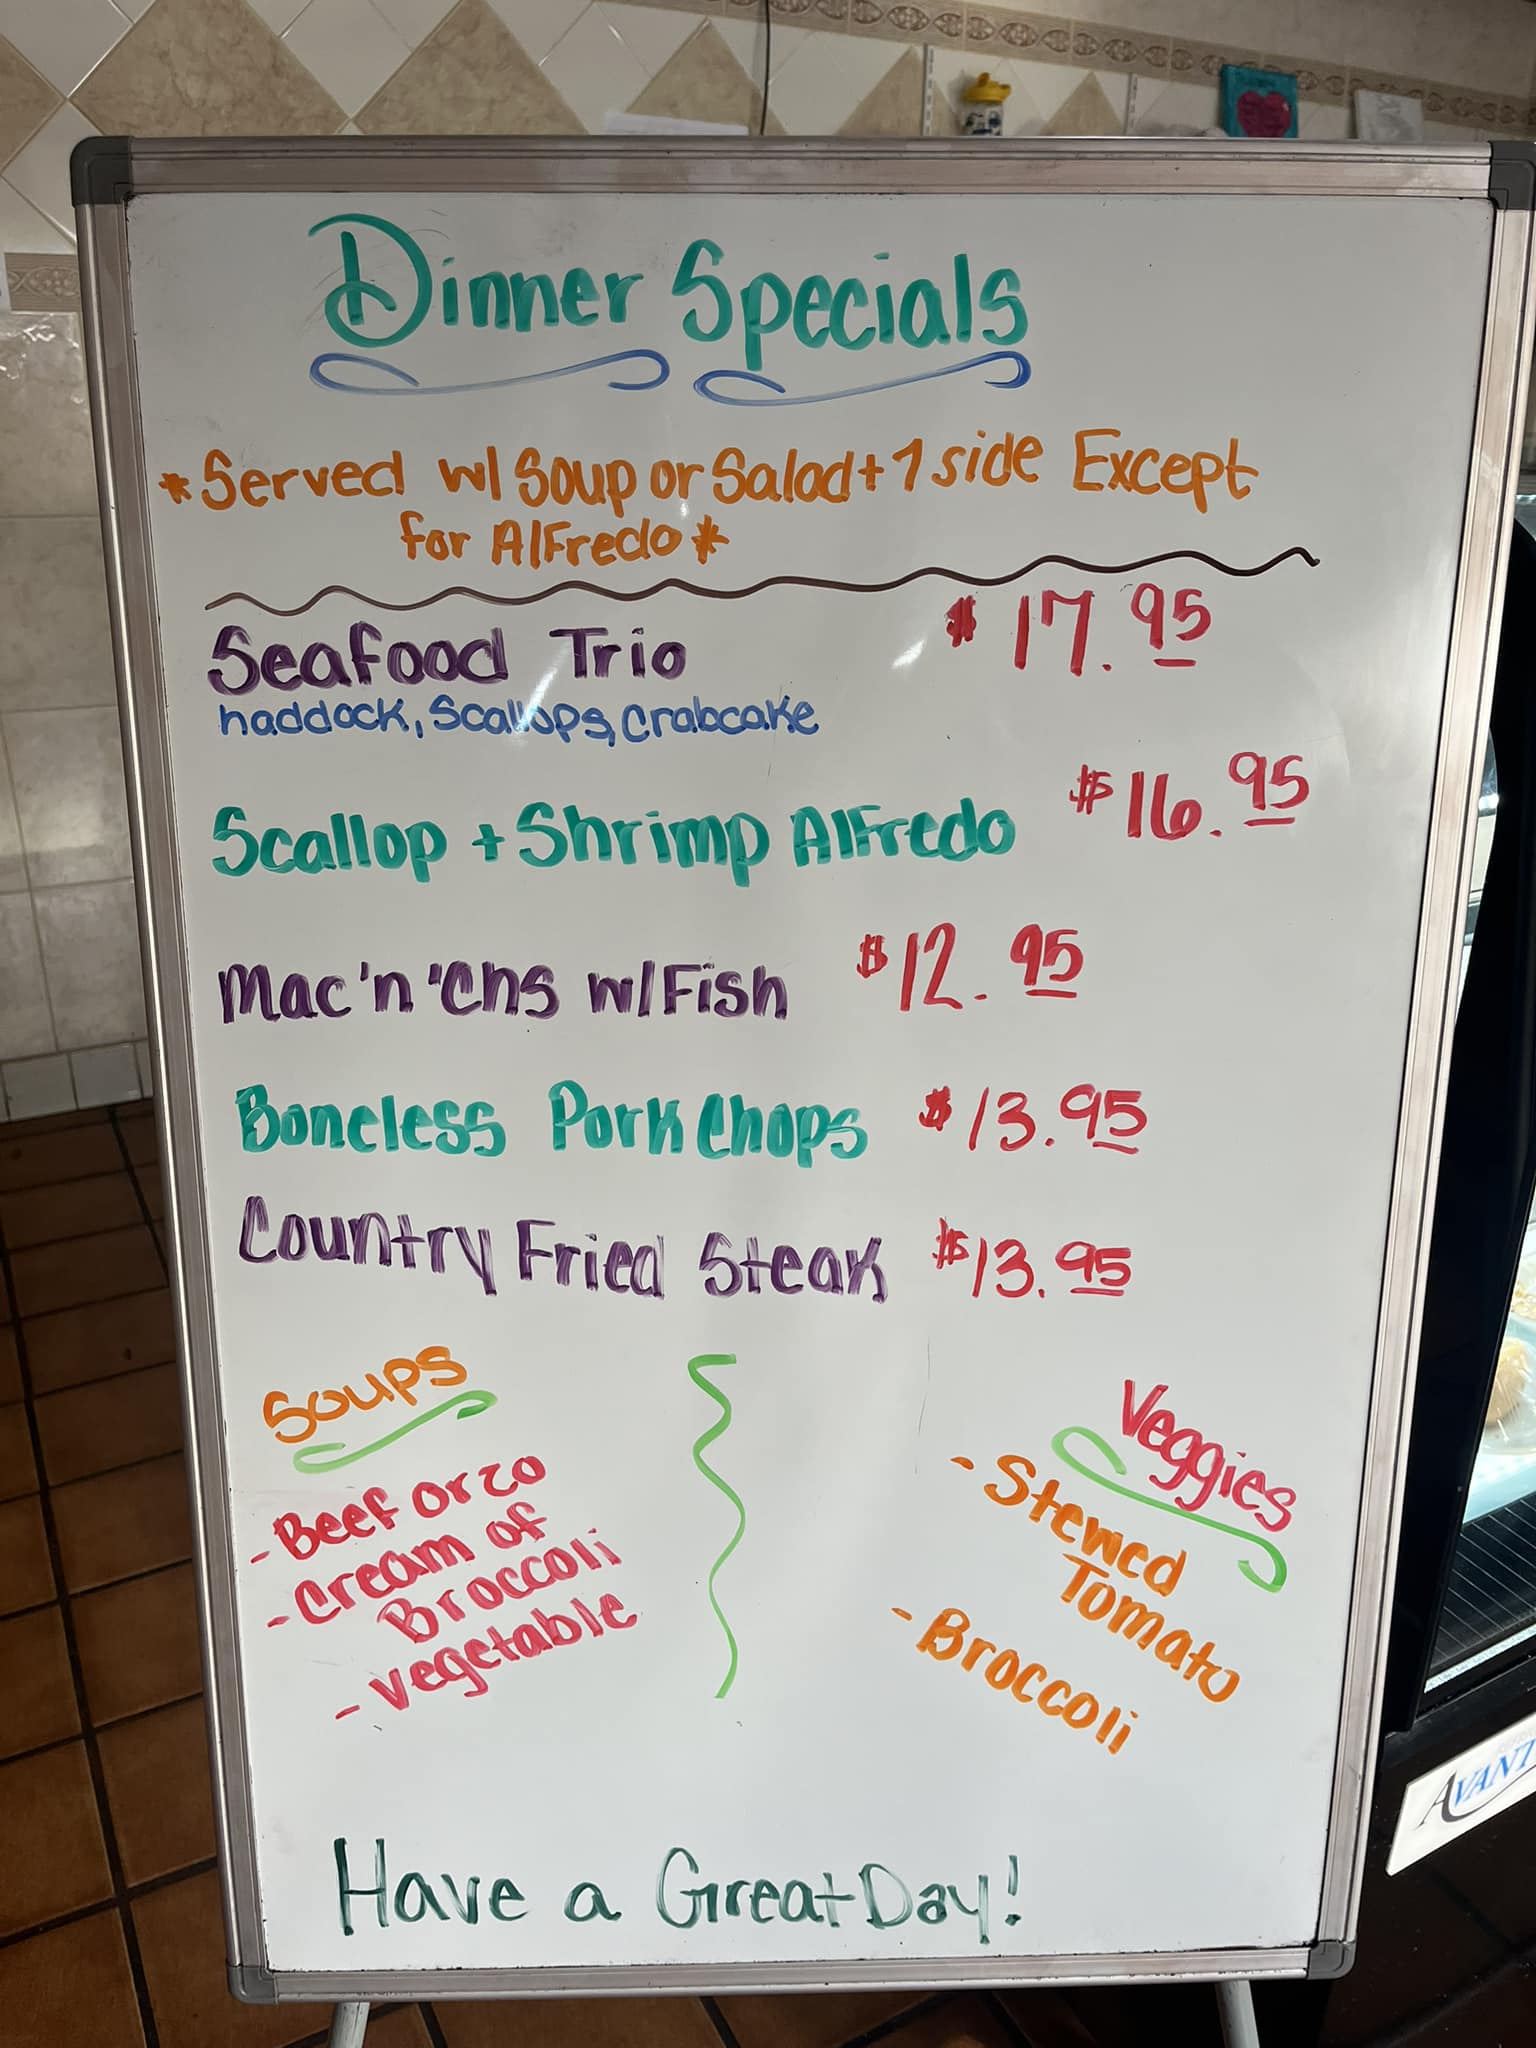 Dinner Specials
*Served w/ Soup or Salad + 1 side Except
for Alfredo*
Seafood Trio $17.95
haddock, Scallops, Crabcake
Scallop + Shrimp Alfredo $16.95
Mac 'n' Chs w/ Fish $12.95
Boneless Pork Chops $13.95
Country Fried Steak $13.95
Soups
- Beef Orzo
- Cream of
Broccoli
- Vegetable
Veggies
- Stewed
Tomato
- Broccoli
Have a Great Day!